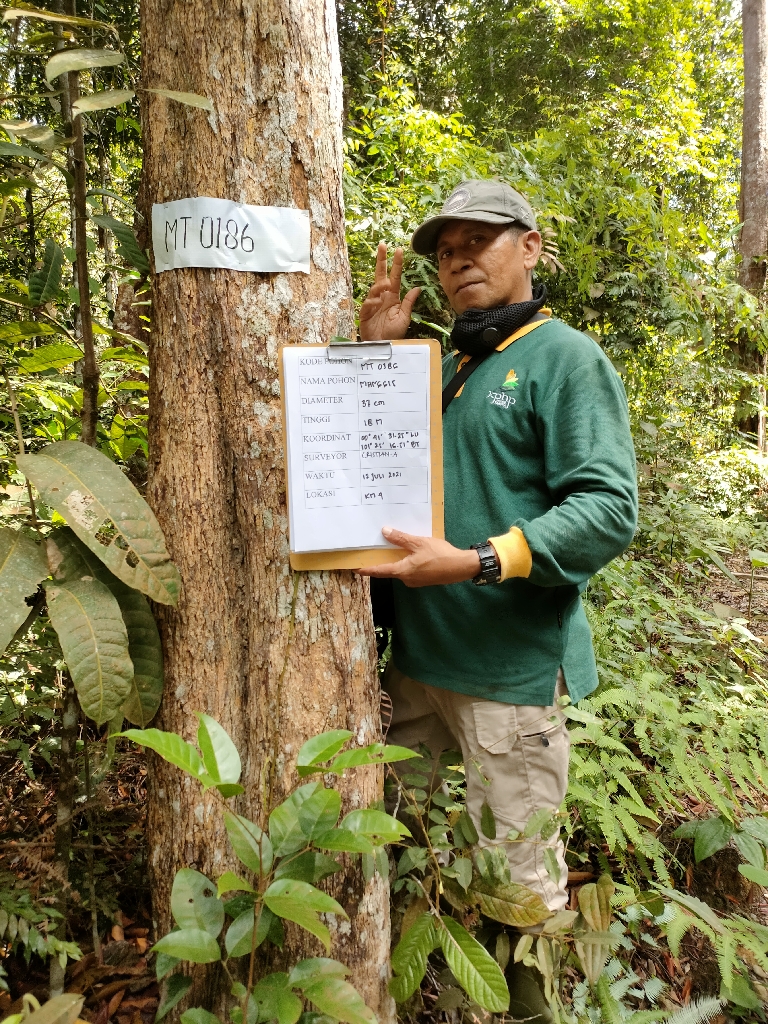 MT 0186
KODE POHON MT 0186
NAMA POHON MANGGIS
DIAMETER 37 cm
TINGGI 18 M
KOORDINAT 00° 41' 31.25" LU
101° 21' 16.57" BT
SURVEYOR CRISTIAN.A
WAKTU 12 JULI 2021
LOKASI KM 9